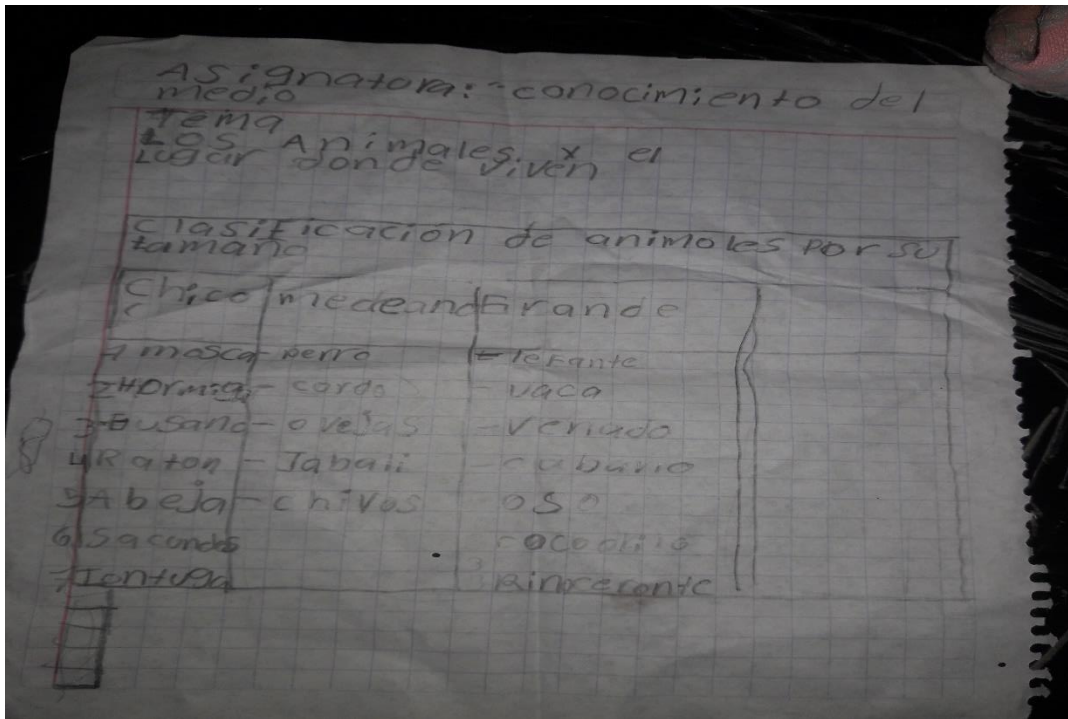 Asignatora: conocimiento del
medio
Tema
Los Animales y el
Lugar donde viven
clasificación de animales por su
tamaño
Chico medeano Grande
1 mosca - perro - lefante
2 Hormiga - cerdo - vaca
3 Gusano - ovejas - venado
4 Raton - Jabali - cabuno
5 Abeja - chivos oso
6 Sacundos
7 Tontuga Rinoceronte